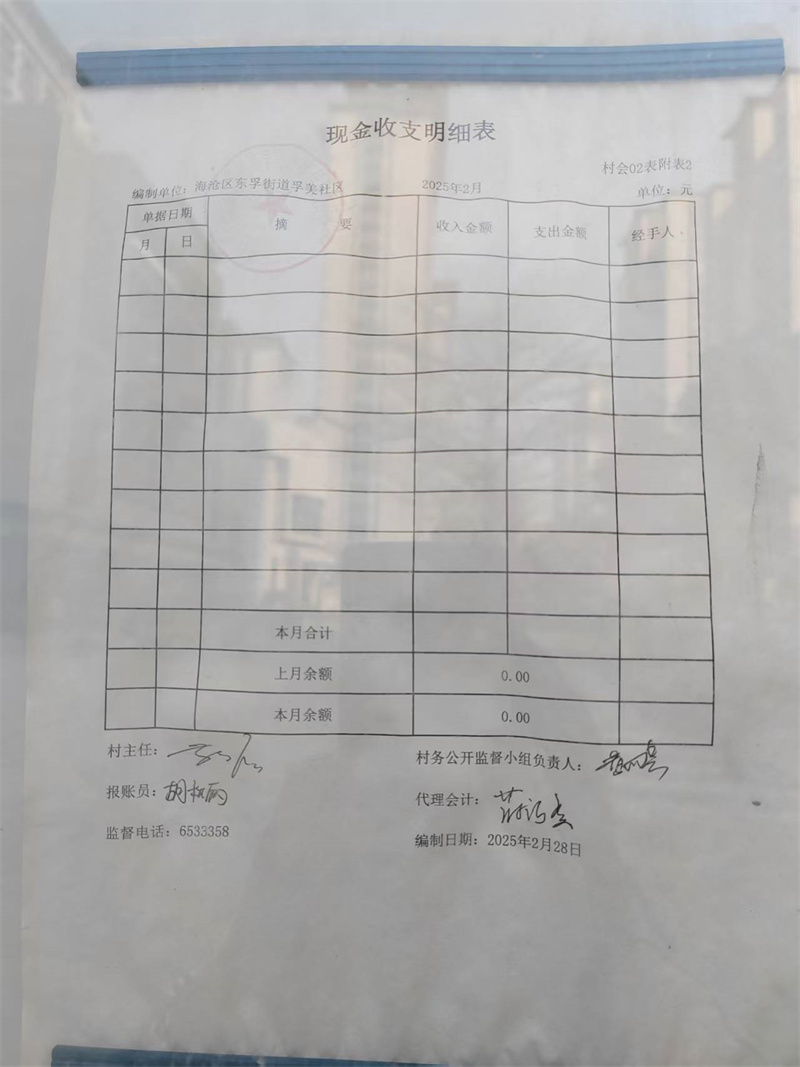 现金收支明细表
村会02表附表2
编制单位：海沧区东孚街道孚美社区 2025年2月 单位：元
单据日期 摘要 收入金额 支出金额 经手人
月 日
本月合计
上月余额 0.00
本月余额 0.00
村主任： 村务公开监督小组负责人：
报账员：胡 代理会计：
监督电话：6533358 编制日期：2025年2月28日